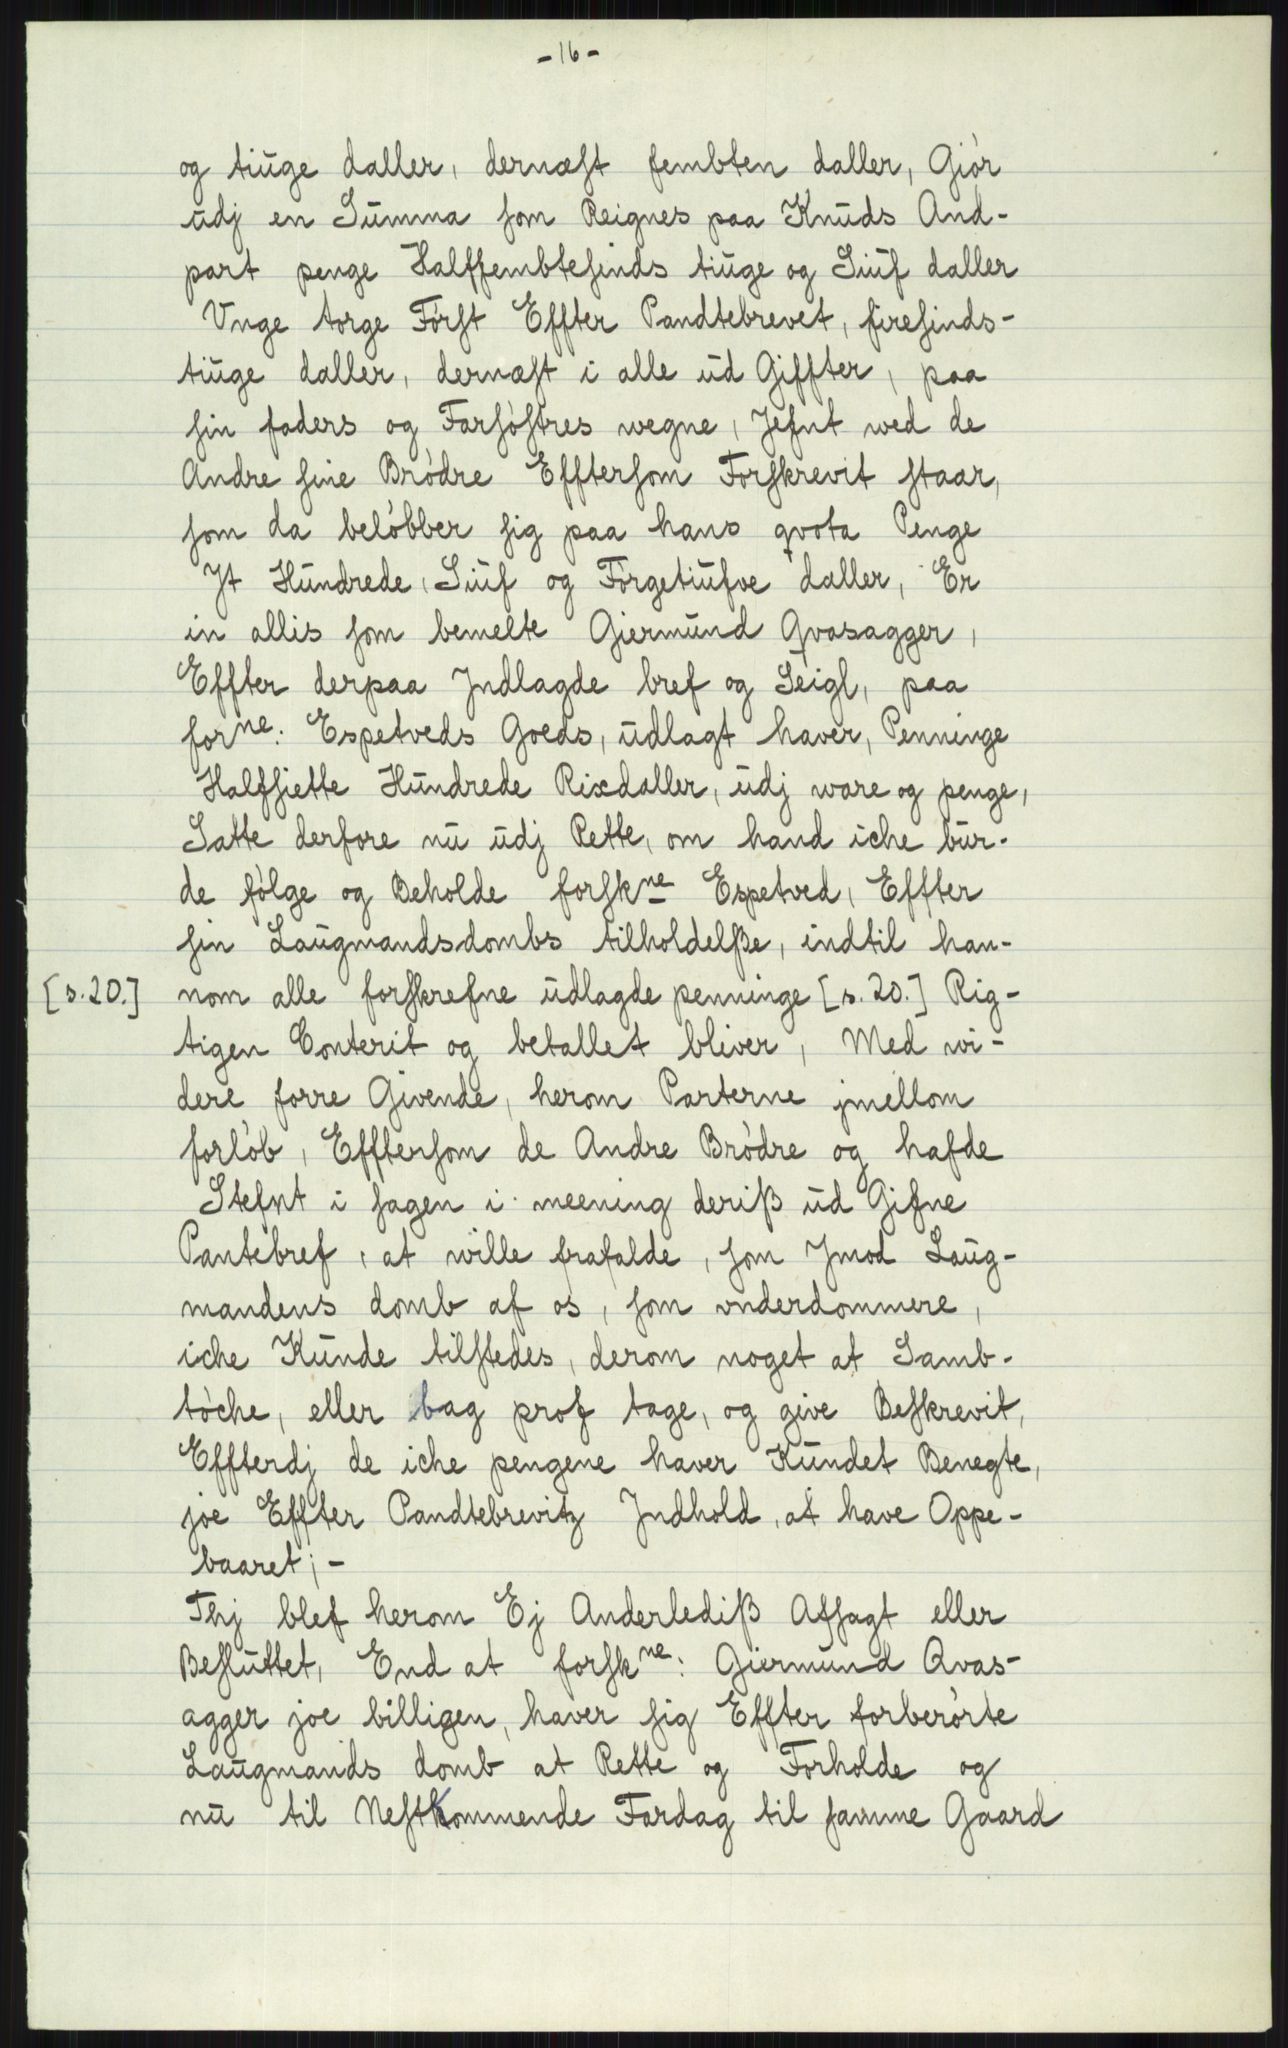 -16-
og tiuge daller, dernæst fembten daller, Giør
udj en Summa som Reignes paa Knuds And-
part penge Halffembtesinds tiuge og Siuf daller
Vnge torge Først Effter Pandtebrevet, firesinds-
tiuge daller, dernæst i alle ud Giffter, paa
sin faders og Farsøstres wegne, Jefnt wed de
Andre sine Brødre Efftersom Forskrevit staar,
som da beløbber sig paa hans qvota Penge
Jt Hundrede, Siuf og Førgetiufve daller, Er
in allis som bemelte Giermund Qvasagger,
Effter derpaa Jndlagde bref og Seigl, paa
forne: Espetveds Goeds, udlagt haver, Penninge
Halfsiette Hundrede Rixdaller, udj ware og penge,
Satte derfore nu udj Rette, om hand iche bur-
de følge og Beholde forskne Espetved, Effter
sin Laugmandsdombs tilholdelsse, indtil han-
[s.20.] nom alle forskrefne udlagde penninge [s. 20.] Rig-
tigen Conterit og betallet bliver, Med wi-
dere forre Givende, herom Parterne jmellom
forløb, Efftersom de Andre Brødre og hafde
Stefnt i sagen i meening deriß ud Gifne
Pantebref, at wille frafalde, som Jmod Laug-
mandens domb af os, som vnderdommere,
iche Kunde tilstedes, derom noget at Samb-
tøche, eller bag prof tage, og give Beskrevit,
Effterdj de iche pengene haver Kundet Benegte,
joe Effter Pandtebrevitz Jndhold, at have Oppe-
baaret; -
Thj blef herom Ej Anderlediß Afsagt eller
Besluttet, End at forskne: Giermund Qvas-
agger joe billigen, haver sig Effter forberørte
Laugmands domb at Rette og Forholde og
nu til Nestkommende Fardag til samme Gaard